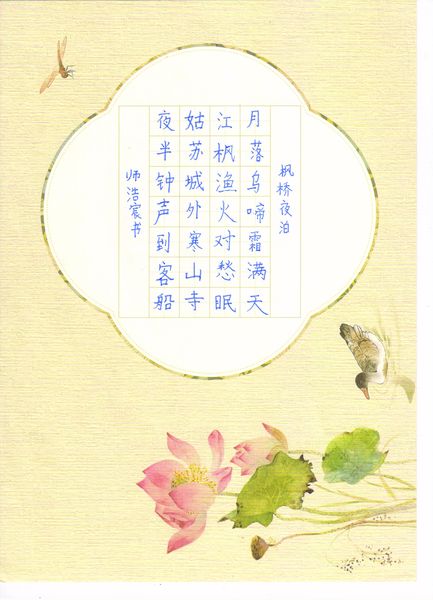 枫桥夜泊
月落乌啼霜满天
江枫渔火对愁眠
姑苏城外寒山寺
夜半钟声到客船
师浩宸书